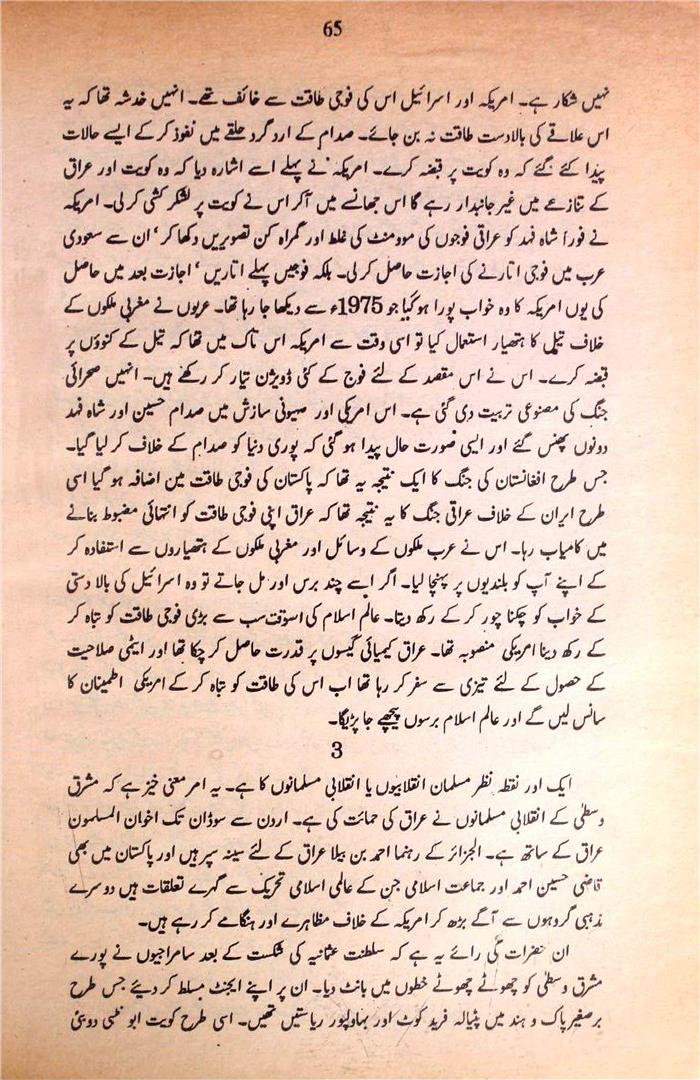 65
نہیں شکار ہے۔ امریکہ اور اسرائیل اس کی فوجی طاقت سے خائف تھے۔ انہیں خدشہ تھا کہ یہ
اس علاقے کی بالادست طاقت نہ بن جائے۔ صدام کے اردگرد حلقے میں نفوذ کرکے ایسے حالات
پیدا کئے گئے کہ وہ کویت پر قبضہ کرے۔ امریکہ نے پہلے اسے اشارہ دیا کہ وہ کویت اور عراق
کے تنازعے میں غیرجانبدار رہے گا اس جھانسے میں آکر اس نے کویت پر لشکر کشی کرلی۔ امریکہ
نے فوراً شاہ فہد کو عراقی فوجوں کی موومنٹ کی غلط اور گمراہ کن تصویریں دکھا کر، ان سے سعودی
عرب میں فوجی اتارنے کی اجازت حاصل کرلی۔ بلکہ فوجیں پہلے اتاریں، اجازت بعد میں حاصل
کی یوں امریکہ کا وہ خواب پورا ہوگیا جو 1975ء سے دیکھا جا رہا تھا۔ عربوں نے مغربی ملکوں کے
خلاف تیل کا ہتھیار استعمال کیا تو اسی وقت سے امریکہ اس تاک میں تھا کہ تیل کے کنوؤں پر
قبضہ کرے۔ اس نے اس مقصد کے لئے فوج کے کئی ڈویژن تیار کر رکھے ہیں۔ انہیں صحرائی
جنگ کی مصنوعی تربیت دی گئی ہے۔ اس امریکی اور صیہونی سازش میں صدام حسین اور شاہ فہد
دونوں پھنس گئے اور ایسی صورت حال پیدا ہوگئی کہ پوری دنیا کو صدام کے خلاف کر لیا گیا۔
جس طرح افغانستان کی جنگ کا ایک نتیجہ یہ تھا کہ پاکستان کی فوجی طاقت میں اضافہ ہوگیا اسی
طرح ایران کے خلاف عراقی جنگ کا یہ نتیجہ تھا کہ عراق اپنی فوجی طاقت کو انتہائی مضبوط بنانے
میں کامیاب رہا۔ اس نے عرب ملکوں کے وسائل اور مغربی ملکوں کے ہتھیاروں سے استفادہ کر
کے اپنے آپ کو بلندیوں پر پہنچا لیا۔ اگر اسے چند برس اور مل جاتے تو وہ اسرائیل کی بالادستی
کے خواب کو چکنا چور کرکے رکھ دیتا۔ عالم اسلام کی اسوقت سب سے بڑی فوجی طاقت کو تباہ کر
کے رکھ دینا امریکی منصوبہ تھا۔ عراق کیمیائی گیسوں پر قدرت حاصل کرچکا تھا اور ایٹمی صلاحیت
کے حصول کے لئے تیزی سے سفر کر رہا تھا اب اس کی طاقت کو تباہ کرکے امریکی اطمینان کا
سانس لیں گے اور عالم اسلام برسوں پیچھے جا پڑیگا۔
3
ایک اور نقطہ نظر مسلمان انقلابیوں یا انقلابی مسلمانوں کا ہے۔ یہ امر معنی خیز ہے کہ مشرق
وسطیٰ کے انقلابی مسلمانوں نے عراق کی حمائت کی ہے۔ اردن سے سوڈان تک اخوان المسلمون
عراق کے ساتھ ہے۔ الجزائر کے رہنما احمد بن بیلا عراق کے لئے سینہ سپر ہیں اور پاکستان میں بھی
قاضی حسین احمد اور جماعت اسلامی جن کے عالمی اسلامی تحریک سے گہرے تعلقات ہیں دوسرے
مذہبی گروہوں سے آگے بڑھ کر امریکہ کے خلاف مظاہرے اور ہنگامے کر رہے ہیں۔
ان حضرات کی رائے یہ ہے کہ سلطنت عثمانیہ کی شکست کے بعد سامراجیوں نے پورے
مشرق وسطیٰ کو چھوٹے چھوٹے خطوں میں بانٹ دیا۔ ان پر اپنے ایجنٹ مسلط کر دیئے جس طرح
برصغیر پاک و ہند میں پٹیالہ فرید کوٹ اور بہاولپور ریاستیں تھیں۔ اسی طرح کویت ابو ظہبی دوبئی